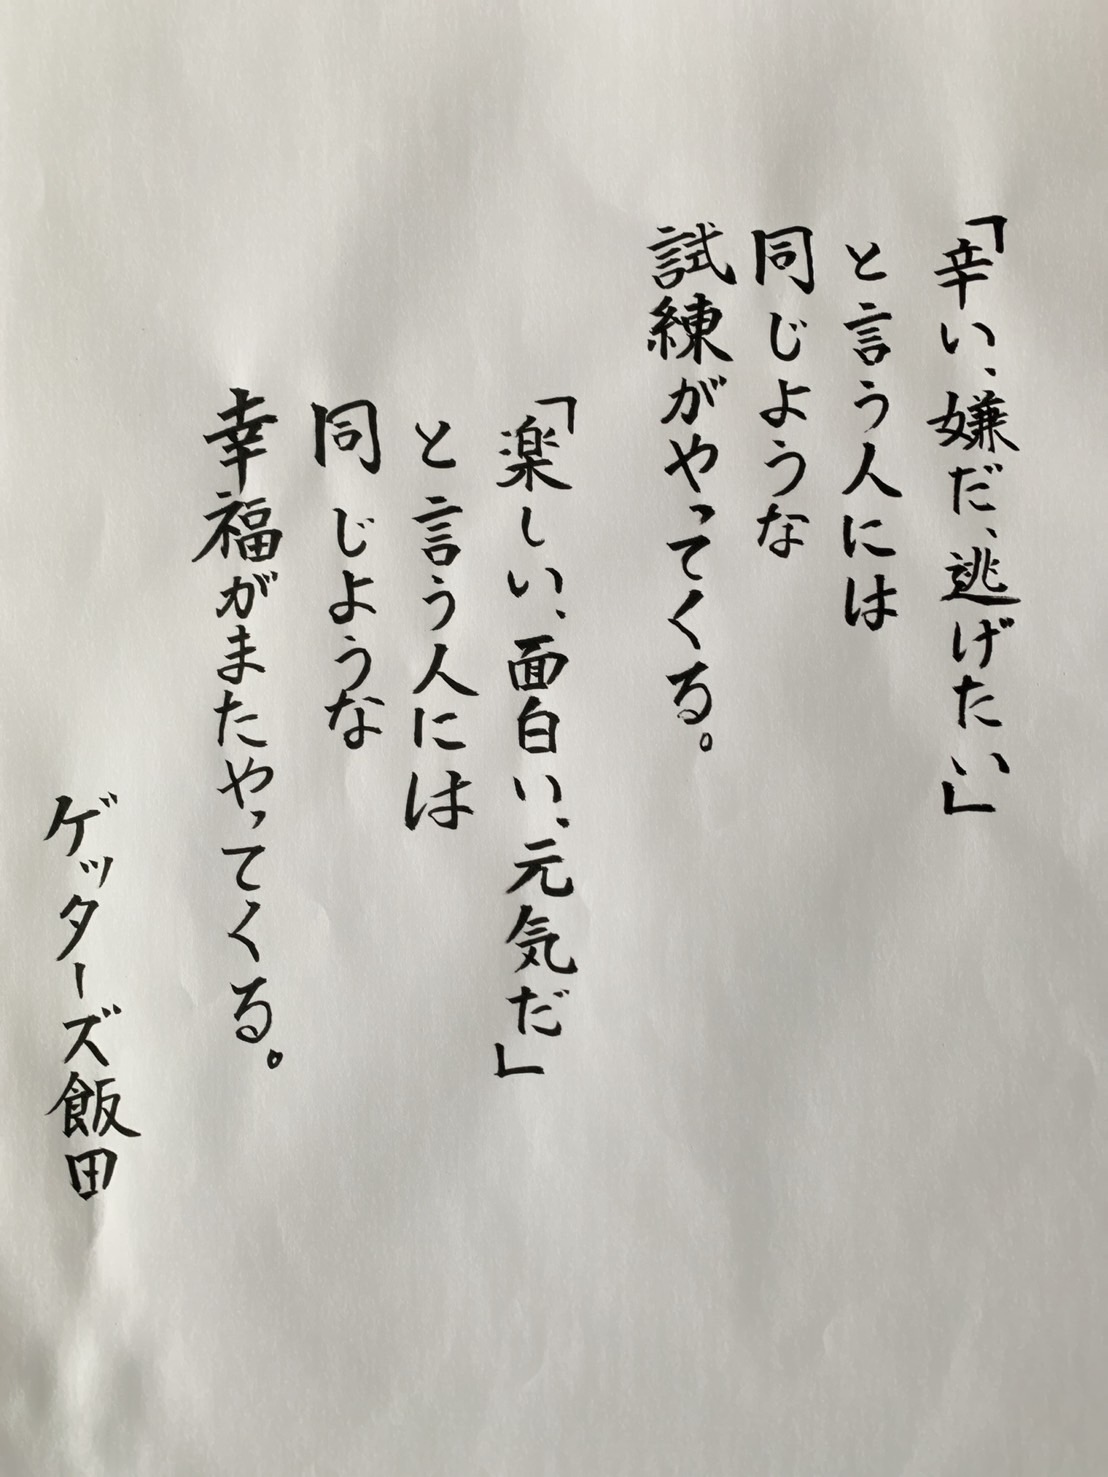 「辛い、嫌だ、逃げたい」
と言う人には
同じような
試練がやってくる。
「楽しい、面白い、元気だ」
と言う人には
同じような
幸福がまたやってくる。
ゲッターズ飯田